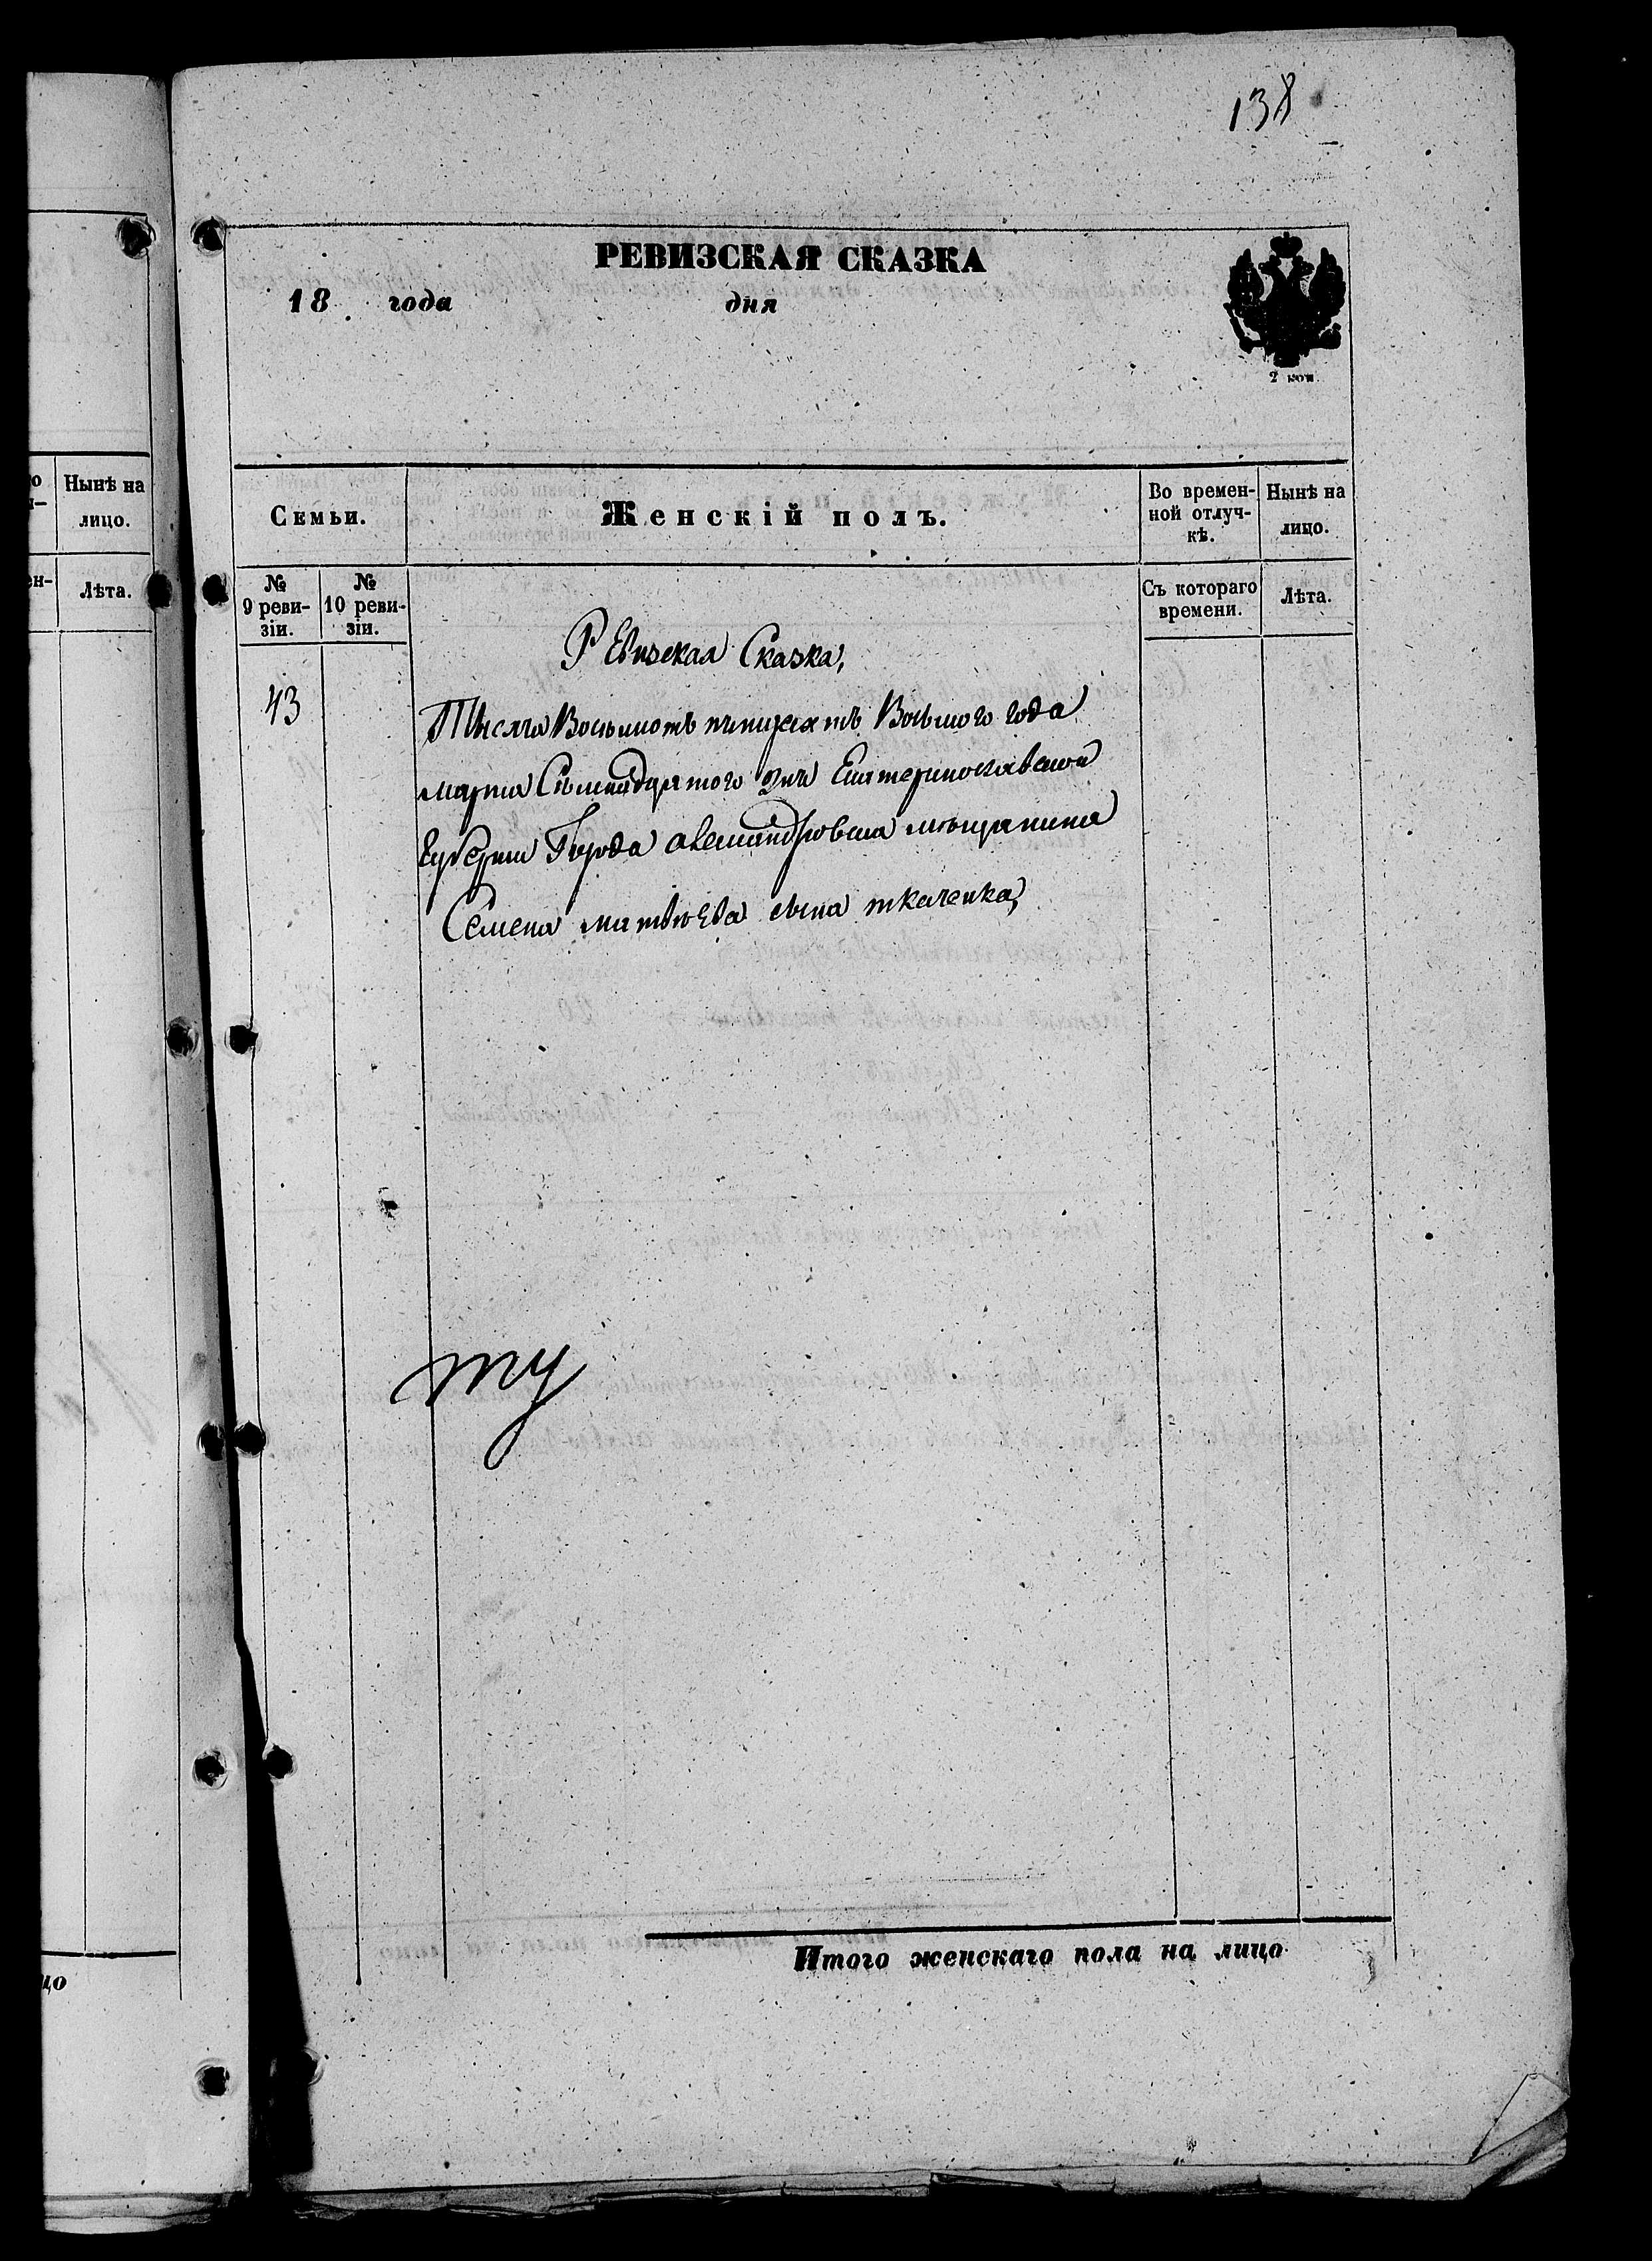 138
РЕВИЗСКАЯ СКАЗКА
18 года дня
2 коп.
Нынѣ на
лицо.
Лѣта.
Семьи.
Женскій полъ.
Во времен-
ной отлуч-
кѣ.
Нынѣ на
лицо.
№
9 реви-
зіи.
№
10 реви-
зіи.
Съ котораго
времени.
Лѣта.
Ревизская Сказка,
43
Тысяча Восьмотъ пятидесятъ Восьмого года
марта Семнадцатого дня Екатеринославской
Губернии Города александровска мѣщанина
Семена матвѣева сына ткаченка,
Итого женскаго пола на лицо
цо